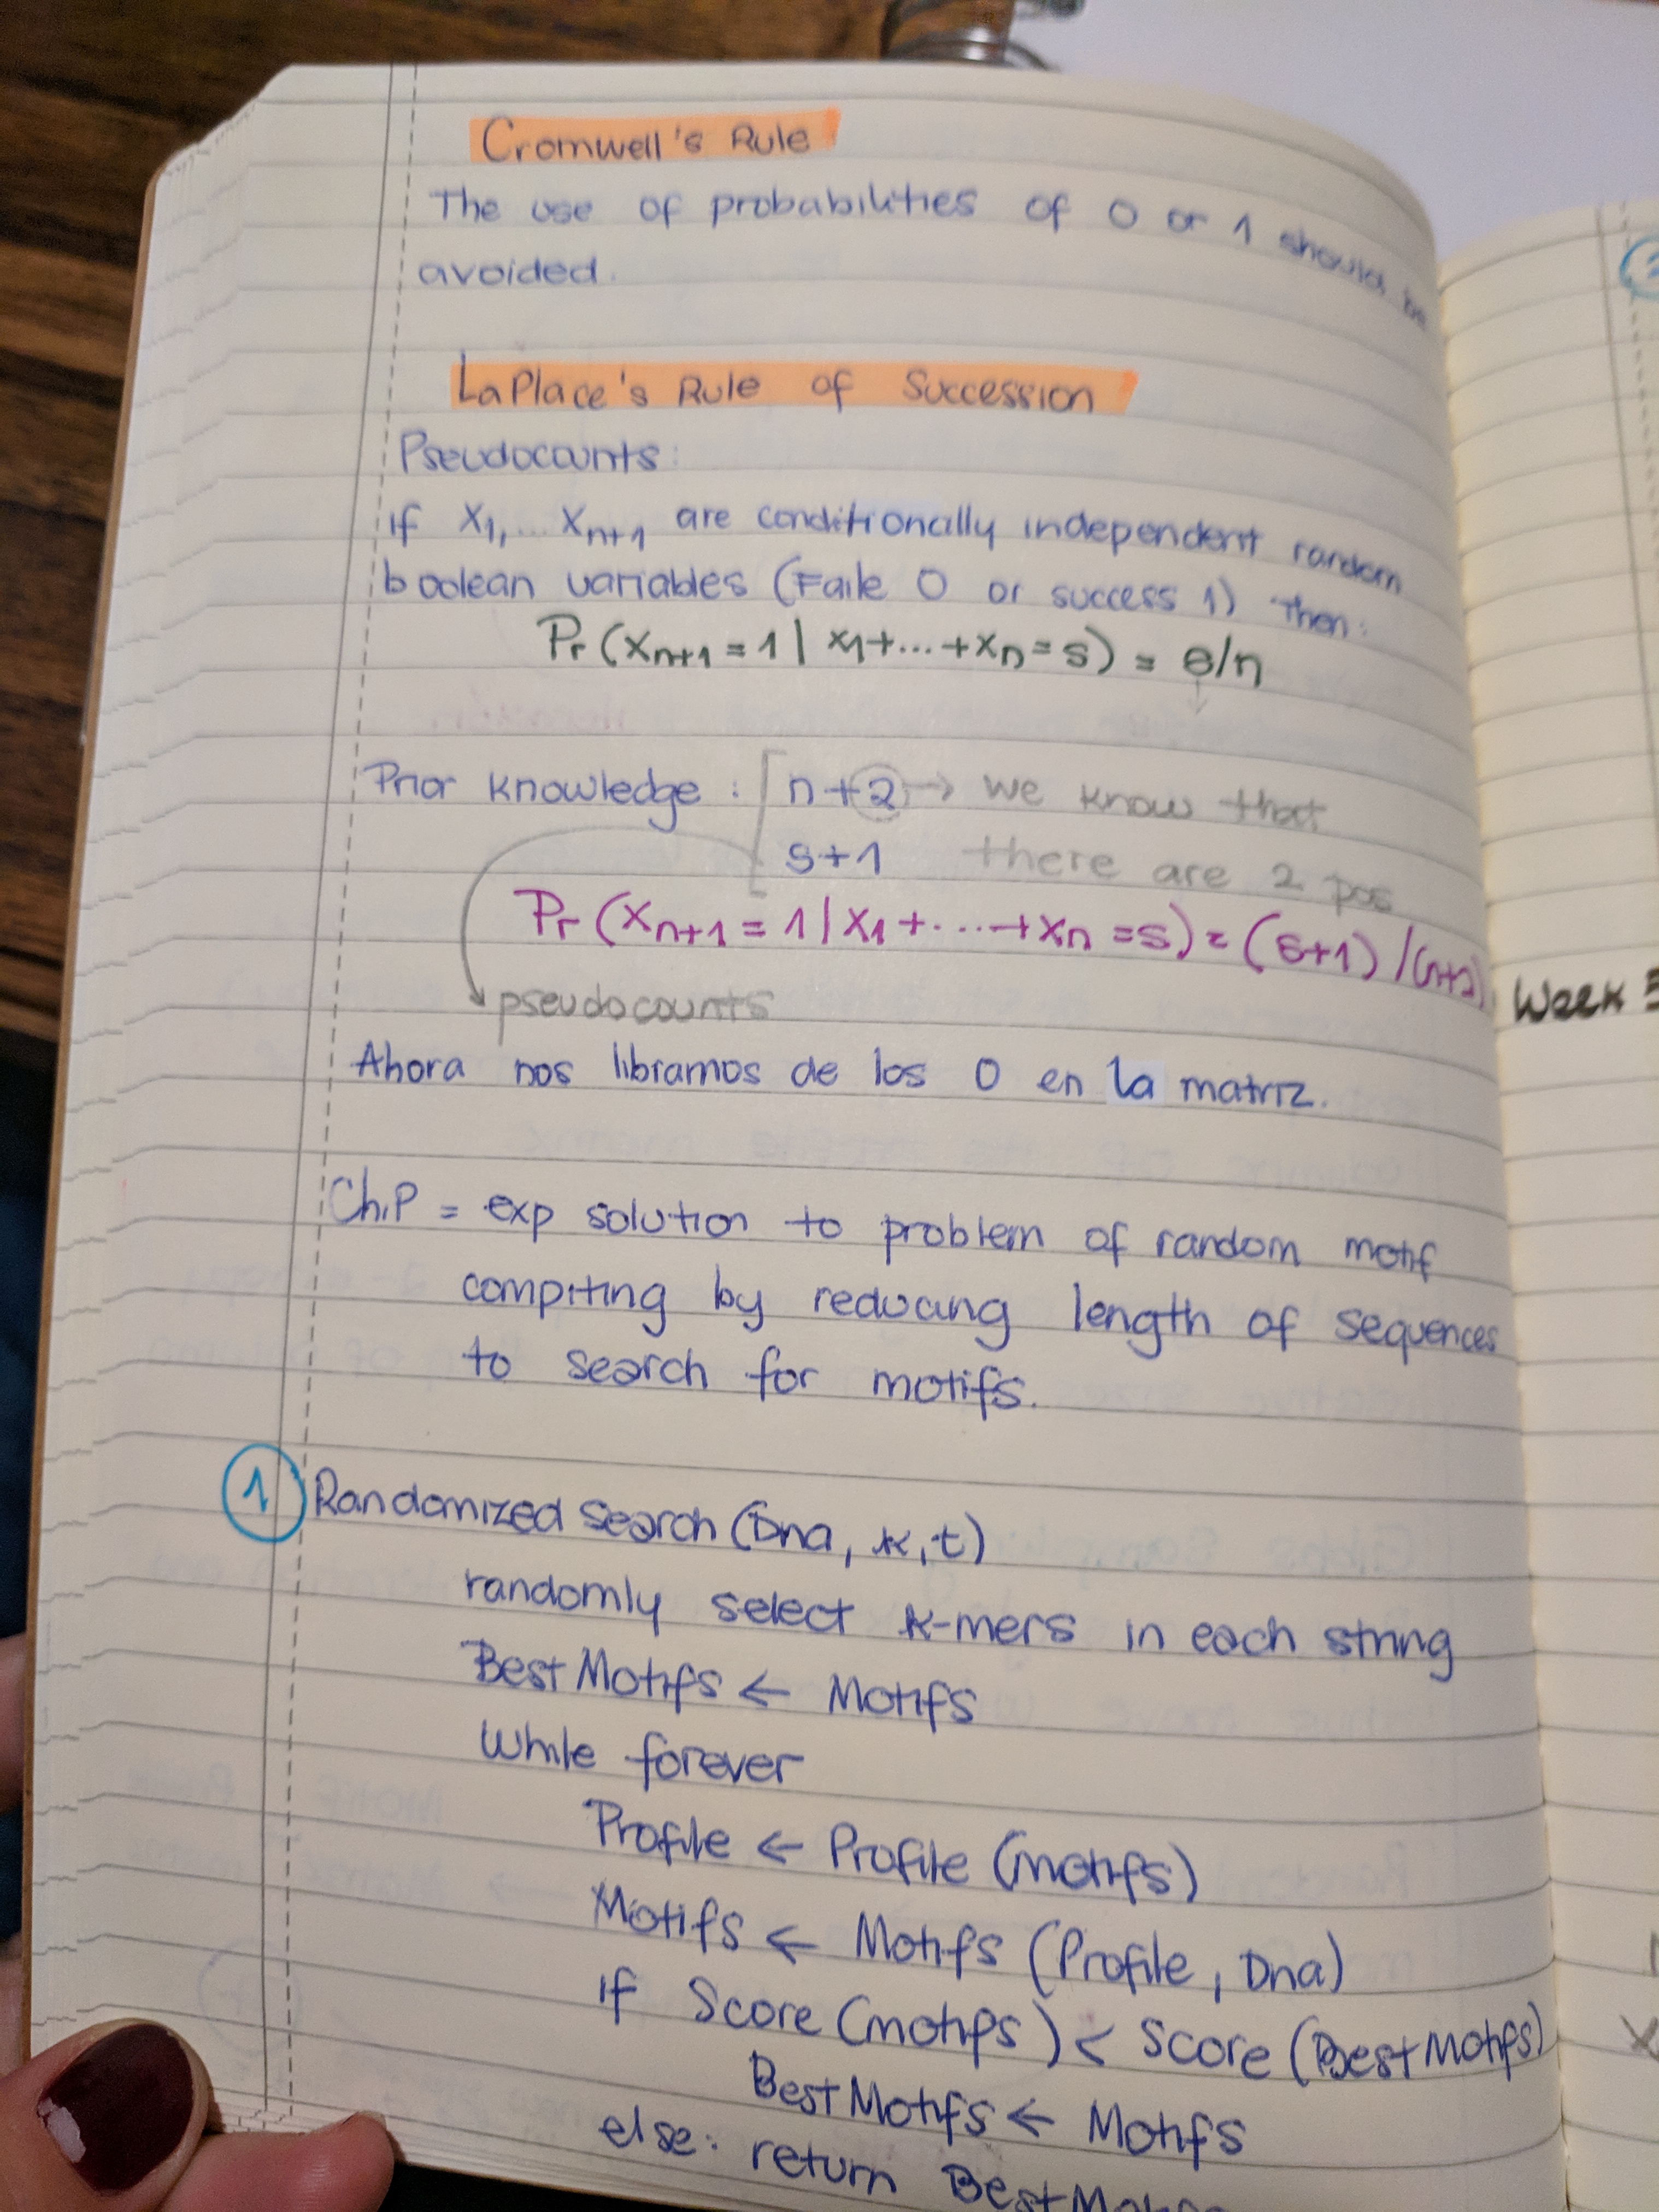 Cromwell's Rule
The use of probabilities of 0 or 1 should be
avoided.
LaPlace's Rule of Succession
Pseudocounts:
if X1,... Xn+1 are conditionally independent random
boolean variables (Faile 0 or success 1) then:
Pr (Xn+1 = 1 | X1+...+Xn = s) = s/n
Prior knowledge : [ n+2 → we know that
s+1 there are 2 pos
Pr (Xn+1 = 1 | X1+...+Xn = s) = (s+1)/(n+2)
pseudocounts
Ahora nos libramos de los 0 en la matriz.
ChiP = exp solution to problem of random motif
compiting by reducing length of sequences
to search for motifs.
1 Randomized Search (Dna, k, t)
randomly select k-mers in each string
Best Motifs ← Motifs
While forever
Profile ← Profile (motifs)
Motifs ← Motifs (Profile, Dna)
if Score (motifs) < Score (Best Motifs)
Best Motifs ← Motifs
else: return Best Motifs
Week